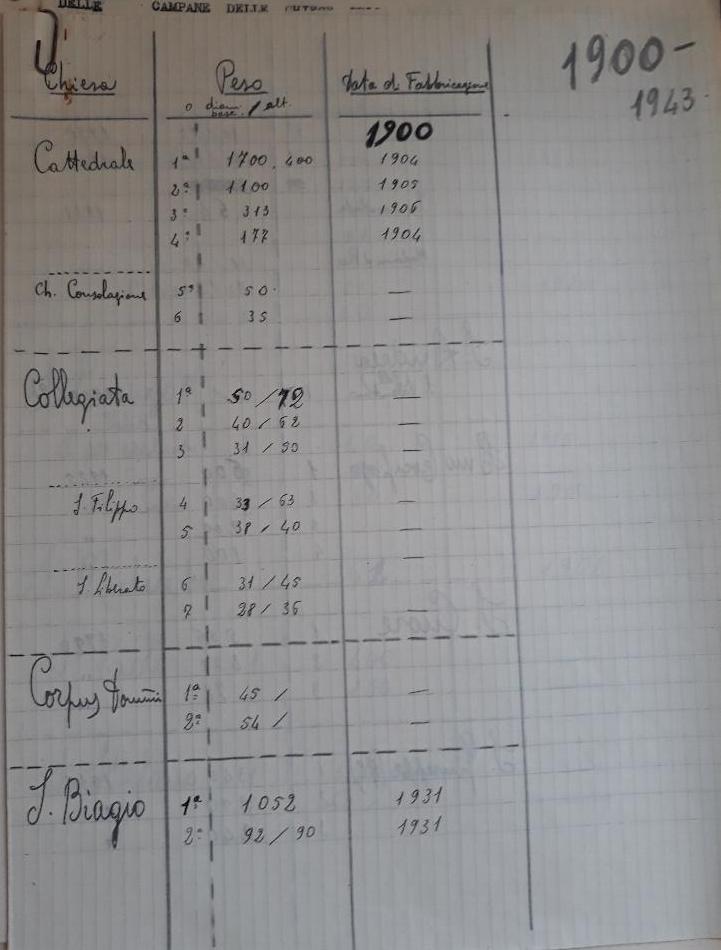 DELLE CAMPANE DELLE
1900-
1943
Chiesa Peso Data di Fabbricazione
o diam. base / alt.
1900
Cattedrale 1ª 1700.400 1904
2ª 1100 1905
3ª 313 1906
4ª 177 1904
Ch. Consolazione 5ª 50 —
6 35 —
Collegiata 1ª 50 / 72 —
2 40 / 52 —
3 31 / 50 —
S. Filippo 4 33 / 63 —
5 38 / 40 —
S. Liberato 6 31 / 45
7 28 / 36 —
Corpus Domini 1ª 45 / —
2ª 54 / —
S. Biagio 1ª 1052 1931
2ª 92 / 90 1931